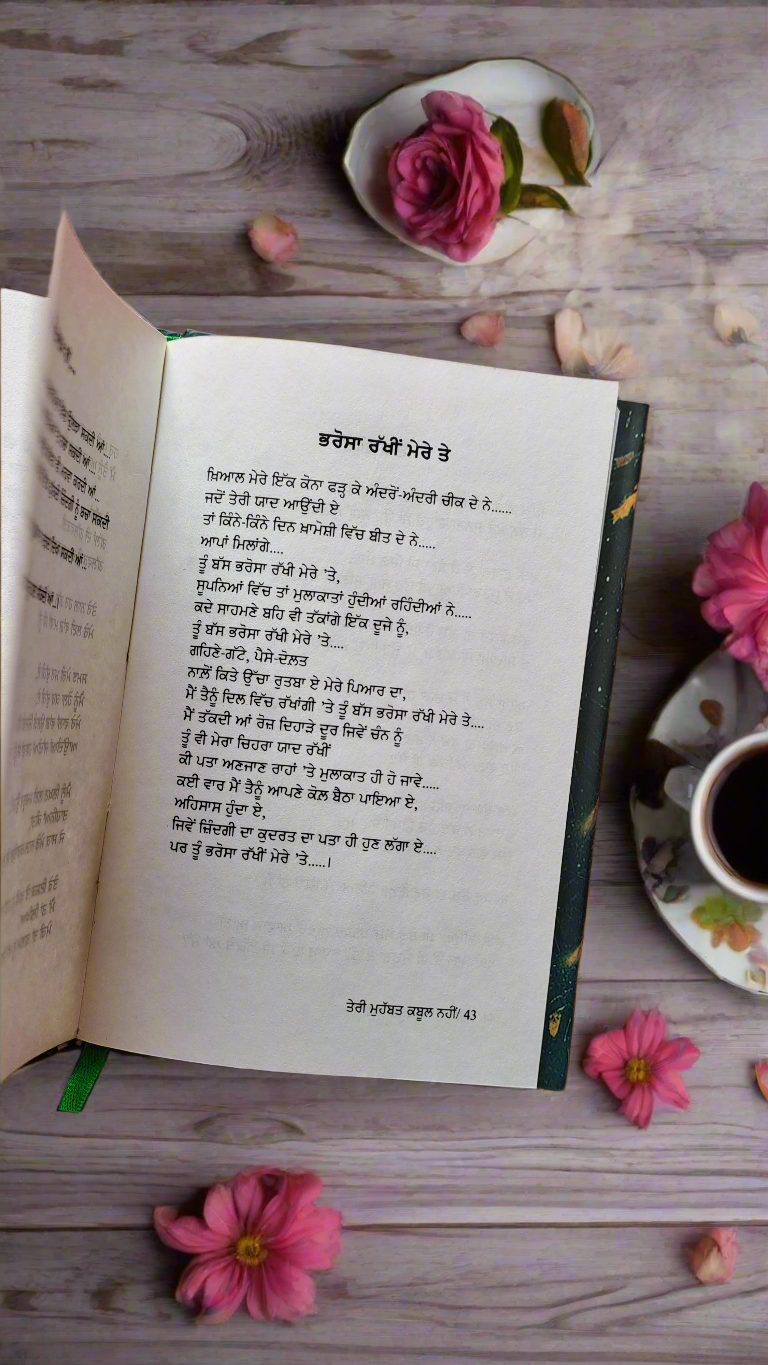 ਭਰੋਸਾ ਰੱਖੀਂ ਮੇਰੇ ਤੇ
ਖ਼ਿਆਲ ਮੇਰੇ ਇੱਕ ਕੋਨਾ ਫੜ੍ਹ ਕੇ ਅੰਦਰੋਂ-ਅੰਦਰੀ ਚੀਕ ਦੇ ਨੇ......
ਜਦੋਂ ਤੇਰੀ ਯਾਦ ਆਉਂਦੀ ਏ
ਤਾਂ ਕਿੰਨੇ-ਕਿੰਨੇ ਦਿਨ ਖ਼ਾਮੋਸ਼ੀ ਵਿੱਚ ਬੀਤ ਦੇ ਨੇ.....
ਆਪਾਂ ਮਿਲਾਂਗੇ....
ਤੂੰ ਬੱਸ ਭਰੋਸਾ ਰੱਖੀ ਮੇਰੇ 'ਤੇ,
ਸੁਪਨਿਆਂ ਵਿੱਚ ਤਾਂ ਮੁਲਾਕਾਤਾਂ ਹੁੰਦੀਆਂ ਰਹਿੰਦੀਆਂ ਨੇ.....
ਕਦੇ ਸਾਹਮਣੇ ਬਹਿ ਵੀ ਤੱਕਾਂਗੇ ਇੱਕ ਦੂਜੇ ਨੂੰ,
ਤੂੰ ਬੱਸ ਭਰੋਸਾ ਰੱਖੀ ਮੇਰੇ 'ਤੇ....
ਗਹਿਣੇ-ਗੱਟੇ, ਪੈਸੇ-ਦੌਲਤ
ਨਾਲੋਂ ਕਿਤੇ ਉੱਚਾ ਰੁਤਬਾ ਏ ਮੇਰੇ ਪਿਆਰ ਦਾ,
ਮੈਂ ਤੈਨੂੰ ਦਿਲ ਵਿੱਚ ਰੱਖਾਂਗੀ 'ਤੇ ਤੂੰ ਬੱਸ ਭਰੋਸਾ ਰੱਖੀ ਮੇਰੇ ਤੇ....
ਮੈਂ ਤੱਕਦੀ ਆਂ ਰੋਜ਼ ਦਿਹਾੜੇ ਦੂਰ ਜਿਵੇਂ ਚੰਨ ਨੂੰ
ਤੂੰ ਵੀ ਮੇਰਾ ਚਿਹਰਾ ਯਾਦ ਰੱਖੀਂ
ਕੀ ਪਤਾ ਅਣਜਾਣ ਰਾਹਾਂ 'ਤੇ ਮੁਲਾਕਾਤ ਹੀ ਹੋ ਜਾਵੇ.....
ਕਈ ਵਾਰ ਮੈਂ ਤੈਨੂੰ ਆਪਣੇ ਕੋਲ ਬੈਠਾ ਪਾਇਆ ਏ,
ਅਹਿਸਾਸ ਹੁੰਦਾ ਏ,
ਜਿਵੇਂ ਜ਼ਿੰਦਗੀ ਦਾ ਕੁਦਰਤ ਦਾ ਪਤਾ ਹੀ ਹੁਣ ਲੱਗਾ ਏ....
ਪਰ ਤੂੰ ਭਰੋਸਾ ਰੱਖੀਂ ਮੇਰੇ 'ਤੇ.....।
ਤੇਰੀ ਮੁਹੱਬਤ ਕਬੂਲ ਨਹੀਂ/ 43